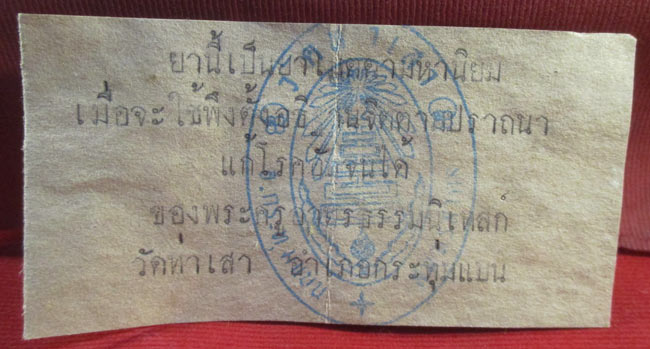 ยานี้เป็นยาเมตตามหานิยม
เมื่อจะใช้พึงตั้งอธิ จิตตามปราถนา
แก้โรค ได้
ของพระครูอาทรธรรมนิเทสก์
วัดท่าเสา อำเภอกระทุ่มแบน